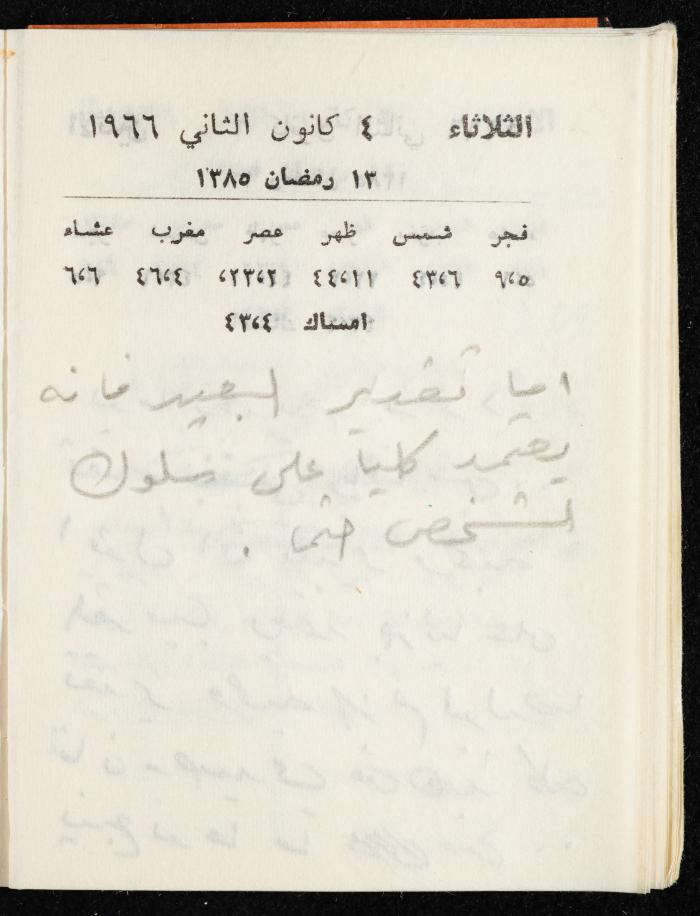 الثلاثاء ٤ كانون الثاني ١٩٦٦
١٣ رمضان ١٣٨٥
فجر شمس ظهر عصر مغرب عشاء
٩،٥ ٤٣،٦ ٤٤،١١ ٢٣،٢، ٤٦،٤ ٦،٦
امساك ٤٣،٤
اما تقدير البعيد فانه
يعتمد كليا على سلوك
الشخص حتما .